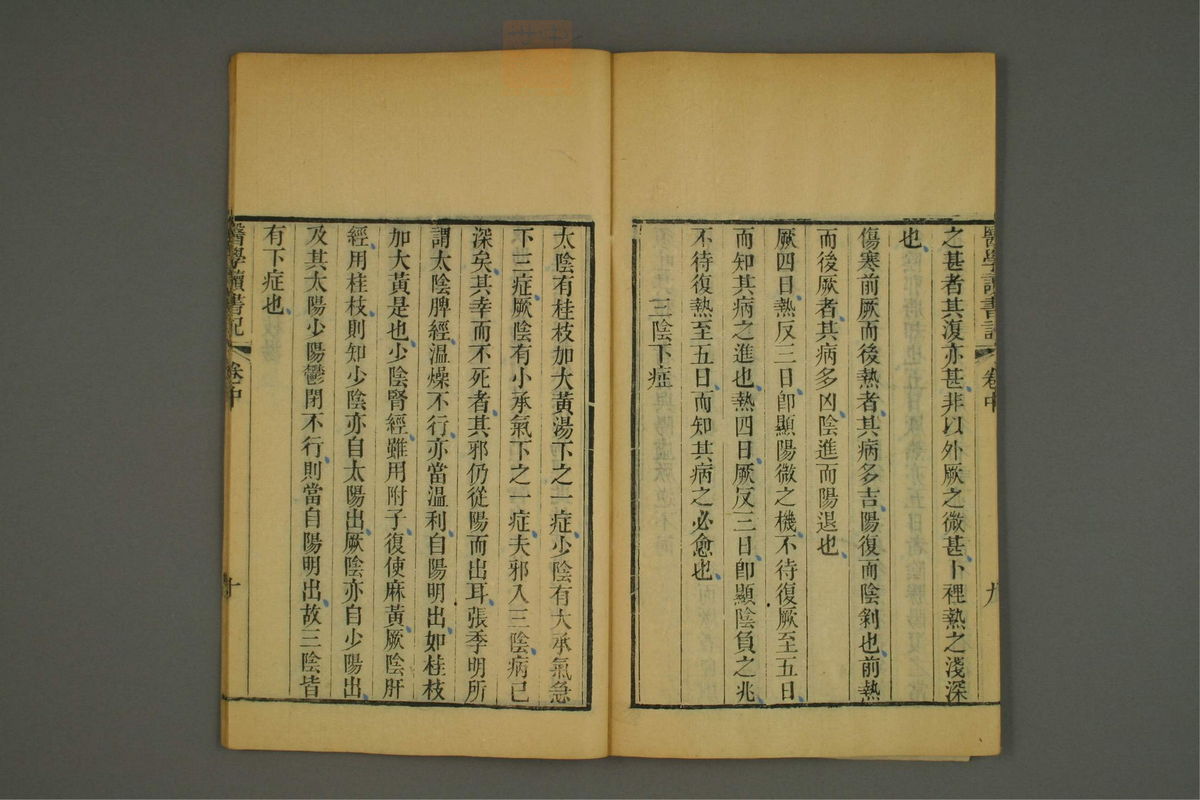 醫學讀書記 卷中 九
之甚者其復亦甚非以外厥之微甚卜裡熱之淺深
也
傷寒前厥而後熱者其病多吉陽復而陰剝也前熱
而後厥者其病多凶陰進而陽退也
厥四日熱反三日卽顯陽微之機不待復厥至五日
而知其病之進也熱四日厥反三日卽顯陰負之兆
不待復熱至五日而知其病之必愈也
三陰下症
太陰有桂枝加大黃湯下之一症少陰有大承氣急
下三症厥陰有小承氣下之一症夫邪入三陰病已
深矣其幸而不死者其邪仍從陽而出耳張季明所
謂太陰脾經溫燥不行亦當溫利自陽明出如桂枝
加大黃是也少陰腎經雖用附子復使麻黃厥陰肝
經用桂枝則知少陰亦自太陽出厥陰亦自少陽出
及其太陽少陽鬱閉不行則當自陽明出故三陰皆
有下症也
醫學讀書記 卷中 十